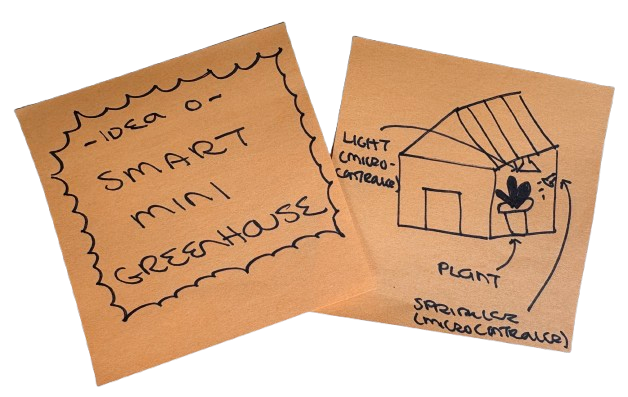 -IDEA O-
SMART
MINI
GREENHOUSE
LIGHT
(MICRO-
CONTROLLER)
PLANT
SPRINKLER
(MICROCONTROLLER)